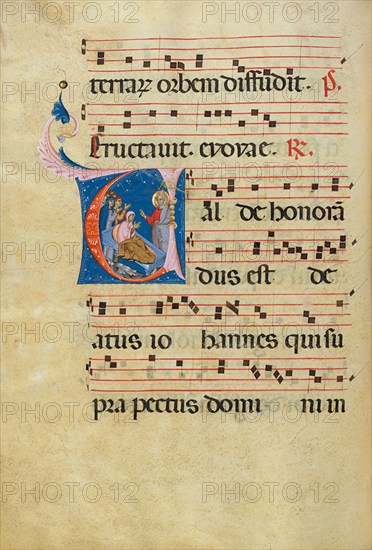 terraꝝ orbem diffudit. P̄.
Eructavit. evovae. R̄.
Val de honorā
dus est de
atus io hannes qui su
pra pectus domi ni in
PHOTO 12